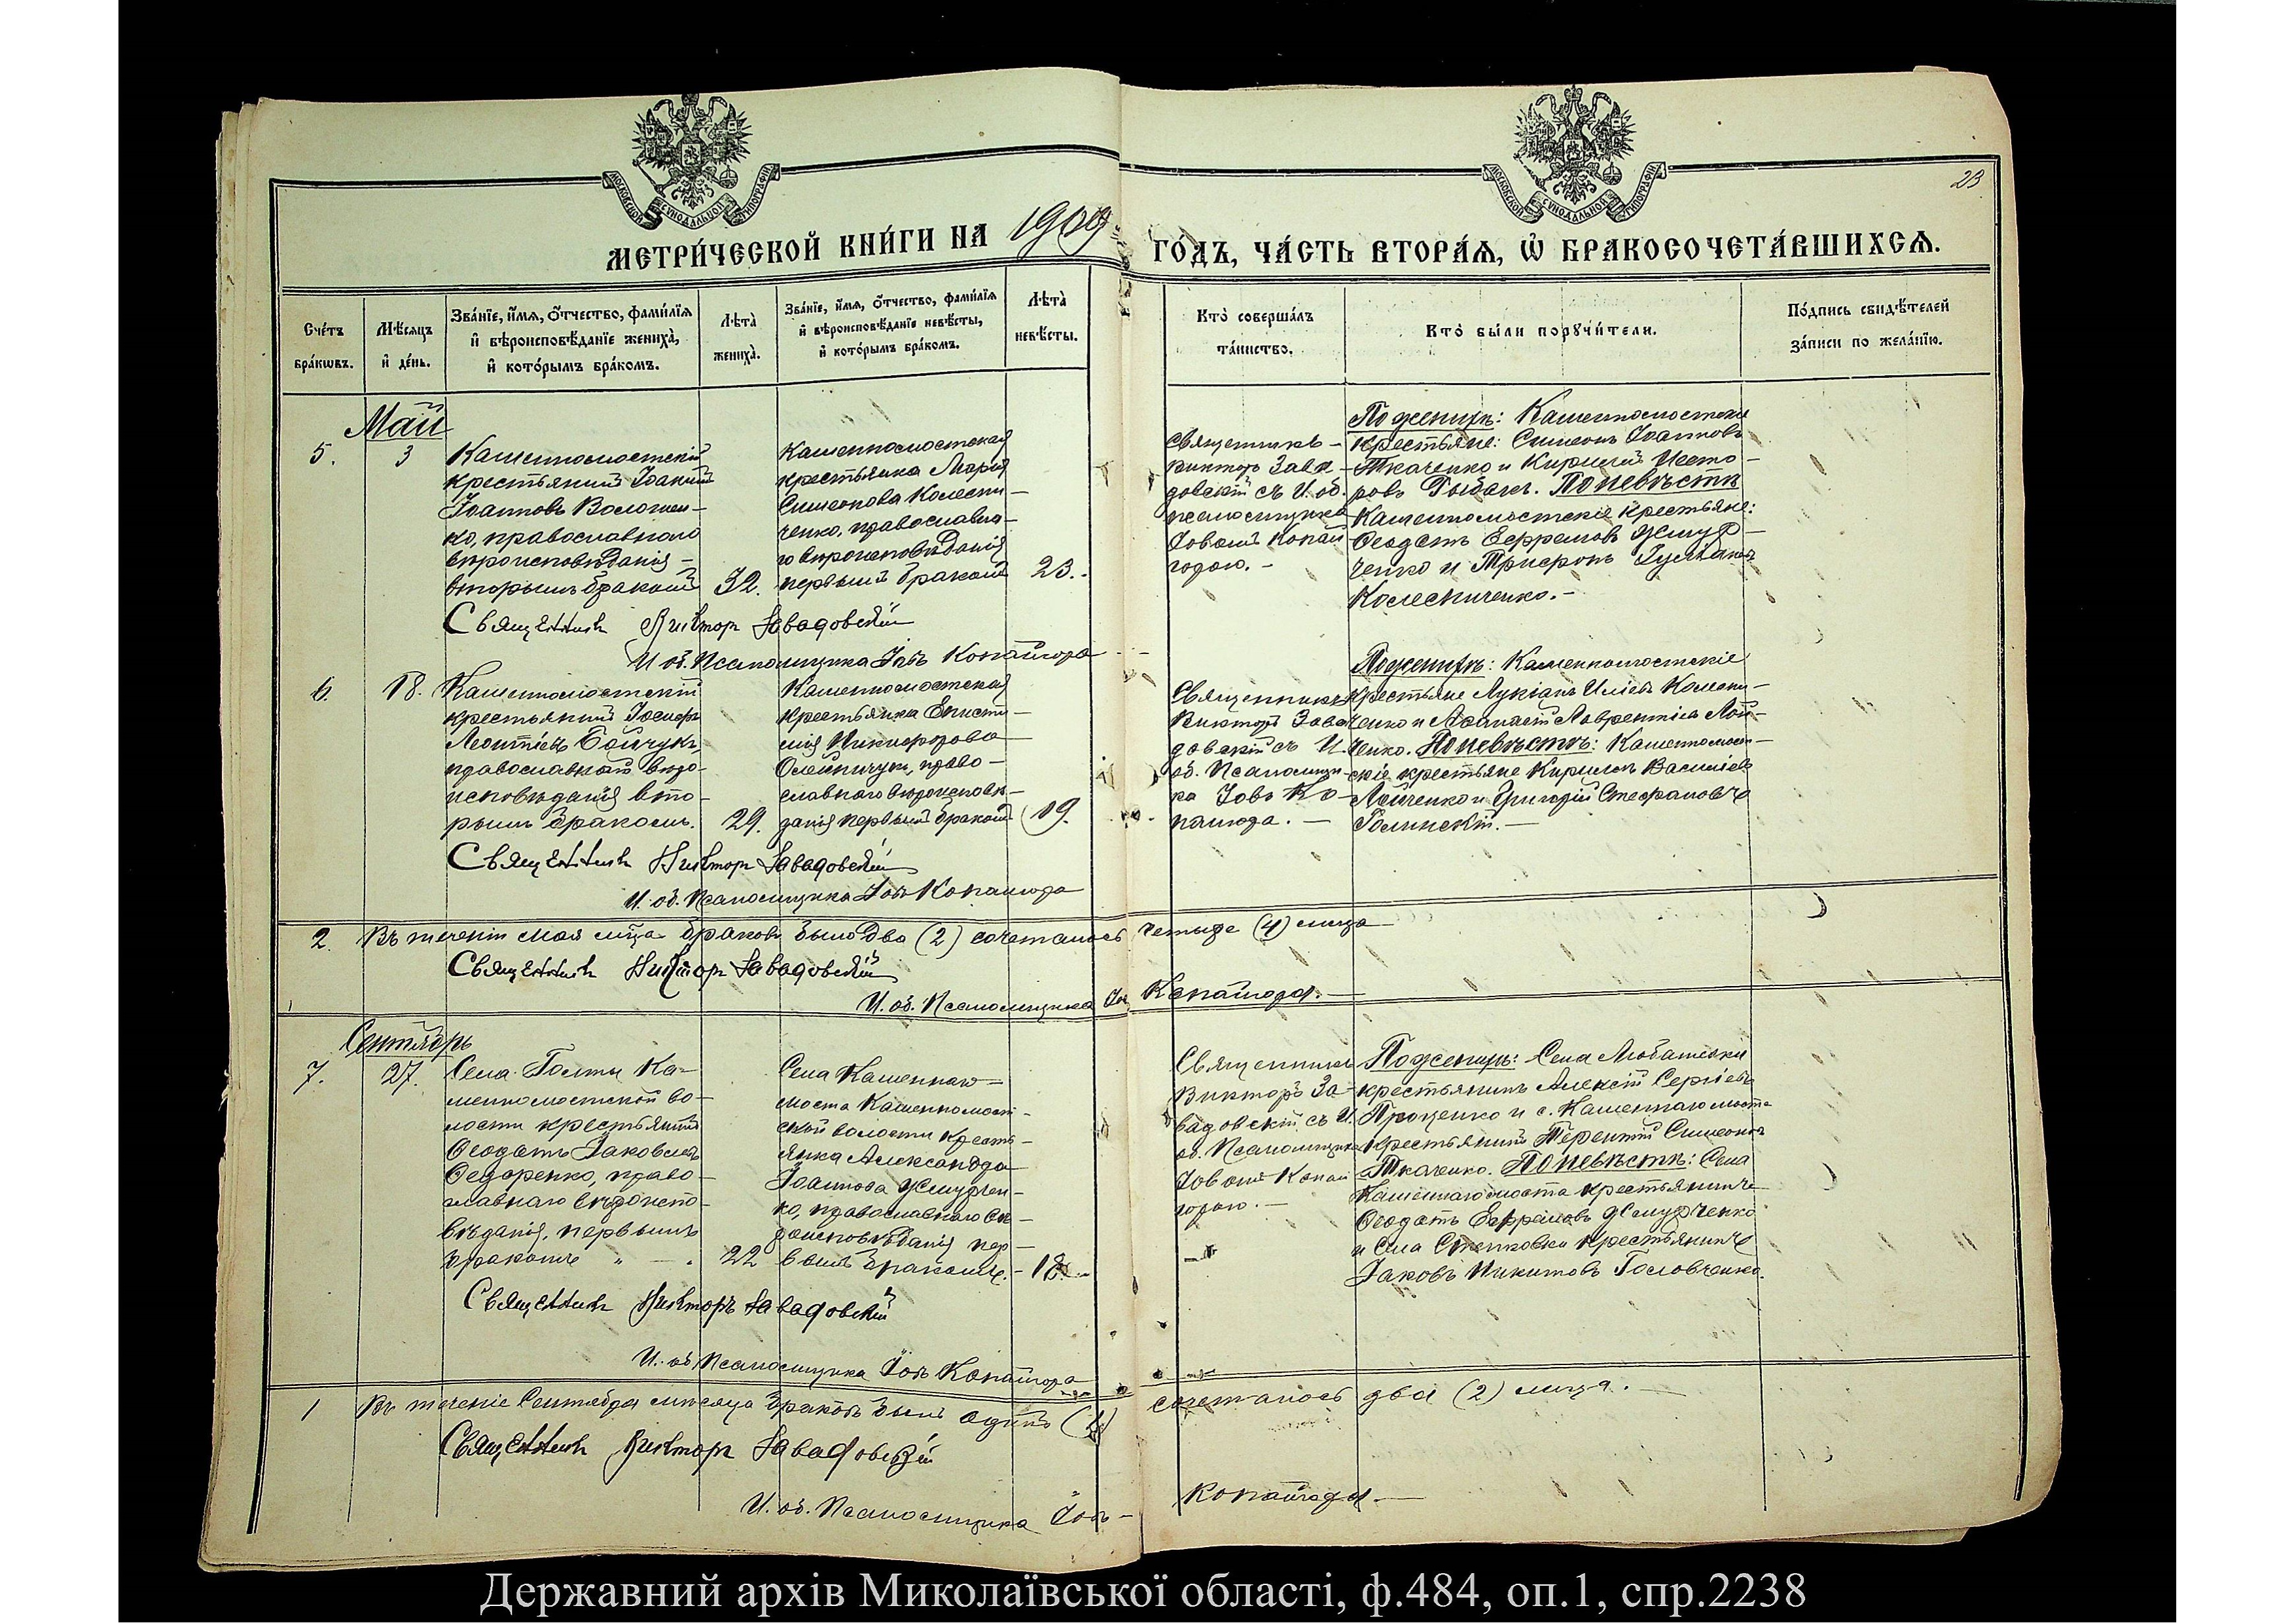 МОСКОВСКОЙ СѴНОДАЛЬНОЙ ТИПОГРАФІИ
МОСКОВСКОЙ СѴНОДАЛЬНОЙ ТИПОГРАФІИ
23
МЕТРИ́ЧЕСКОЙ КНИ́ГИ НА 1909 ГО́ДЪ, ЧА́СТЬ ВТОРА́Ѧ, Ѽ БРАКОСОЧЕТА́ВШИХСѦ.
Сче́тъ
бра́кѡвъ.
Мѣ́сѧцъ
и҆ де́нь.
Зва́нїе, и҆́мѧ, ѻ҆́тчество, фами́лїѧ
и҆ вѣроисповѣ́данїе жениха̀,
и҆ кото́рымъ бра́комъ.
Лѣта̀
жениха̀.
Зва́нїе, и҆́мѧ, ѻ҆́тчество, фами́лїѧ
и҆ вѣроисповѣ́данїе невѣ́сты,
и҆ кото́рымъ бра́комъ.
Лѣта̀
невѣ́сты.
Кто̀ соверша́лъ
та́инство.
Кто̀ бы́ли порꙋчи́тели.
По́дпись свидѣ́телей
за́писи по жела́нїю.
Май
5.
3
Каменномостскій
крестьянинъ Іоакимъ
Іоанновъ Волошен-
ко, православнаго
вѣроисповѣданія -
вторымъ бракомъ
32.
Каменномостская
крестьянка Марія
Симеонова Колесни-
ченко, православна-
го вѣроисповѣданія
первымъ бракомъ
23.
Священникъ -
Викторъ Зава-
довскій съ И. об.
псаломщика
Іовомъ Копай
годою. -
По женихѣ: Каменномостскіе
крестьяне: Симеонъ Іоанновъ
Ткаченко и Кириллъ Несто-
ровъ Рыбакъ. По невѣстѣ
Каменномостскіе крестьяне:
Ѳеодотъ Ефремовъ
ченко и Трифонъ
Колесниченко. -
Священникъ Викторъ Завадовскій
И. об. Псаломщика Іовъ Копайгора
6.
18.
Каменномостскій
крестьянинъ Іосифъ
Леонтіевъ Бойчукъ,
православнаго вѣро-
исповѣданія вто-
рымъ бракомъ.
29.
Каменномостская
крестьянка Еписти-
мія Никифорова
Олейничукъ, право-
славнаго вѣроисповѣ-
данія первымъ бракомъ
19.
Священникъ
Викторъ Зава
довскій съ И.
об. Псаломщи-
ка Іовъ Ко-
. -
По женихѣ: Каменномостскіе
крестьяне Лукіанъ Иліевъ Колесни-
ченко и Аѳанасій Лаврентіевъ Лой-
ченко. По невѣстѣ: Каменномост-
скіе крестьяне Кириллъ Василіевъ
Лойченко и Григорій Стефановъ
Голинскій. -
Священникъ Викторъ Завадовскій
И. об. Псаломщика Іовъ Копайгора
2.
Въ теченіи мая м-ца браковъ было два (2) сочеталось четыре (4) лица
Священникъ Викторъ Завадовскій
И. об. Псаломщика Іовъ Копайгора. -
Сентябрь
7.
27.
Села Голты Ка-
менномостской во-
лости крестьянинъ
Ѳеодотъ Іаковлевъ
Ѳедоренко, право-
славнаго вѣроиспо-
вѣданія, первымъ
бракомъ
22
Села Каменнаго-
моста Каменномост-
ской волости кресть-
янка Александра
Іоаннова
ко, православнаго вѣ-
роисповѣданія пер-
вымъ бракомъ. -
18. -
Священникъ
Викторъ За-
вадовскій съ И.
об. Псаломщика
Іовомъ Копай
. -
По женихѣ: Села Любашевки
крестьянинъ Алексій Сергіевъ
Проценко и с. Каменнаго моста
крестьянинъ Терентій Симеоновъ
Ткаченко. По невѣстѣ: Села
Каменнагомоста крестьянинъ
Ѳеодотъ Ефремовъ
и Села Степковки крестьянинъ
Іаковъ Никитовъ Головченко.
Священникъ Викторъ Завадовскій
И. об. Псаломщика Іовъ Копайгора
1
Въ теченіе Сентября мѣсяца браковъ былъ одинъ (1) сочеталось два (2) лица. -
Священникъ Викторъ Завадовскій
И. об. Псаломщика Іовъ - Копайгора. -
Державний архів Миколаївської області, ф.484, оп.1, спр.2238